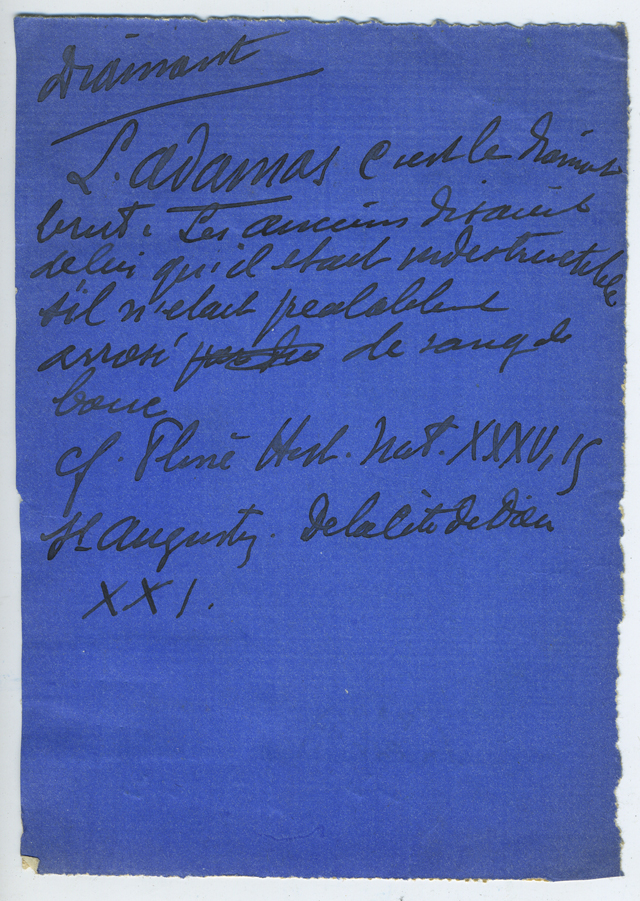 Diamant
L'adamas c'est le diamant
brut. Les anciens disaient
de lui qu'il était indestructible
s'il n'était préalablement
arrosé de sang de
bouc
cf. Pline Hist. Nat. XXXV, 15
St Augustin. De la Cité de Dieu
XXI.